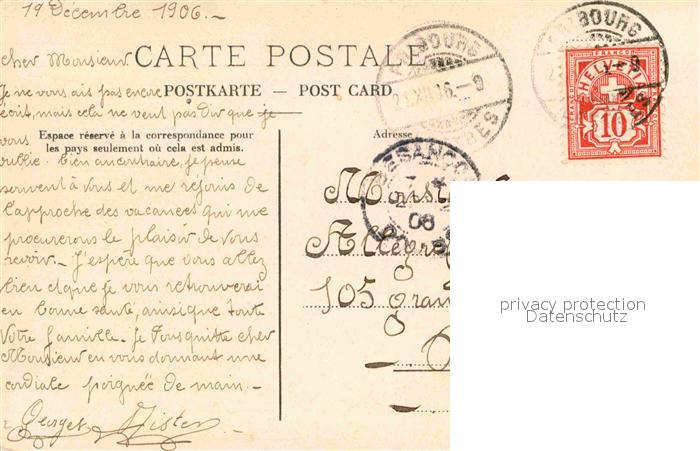 19 Décembre 1906. -
Cher Monsieur
CARTE POSTALE
Je ne vous ai pas encore
POSTKARTE — POST CARD
écrit, mais cela ne veut pas dire que je
Espace réservé à la correspondance pour
les pays seulement où cela est admis.
Adresse
vous
oublie. bien au contraire, je pense
souvent à vous et me réjouis de
l'approche des vacances qui me
procurerons le plaisir de vous
revoir. - J'espère que vous allez
bien et que je vous retrouverai
en bonne santé, ainsi que toute
Votre famille. - Je Vous quitte cher
Monsieur en vous donnant une
cordiale poignée de main. -
Georges
FRIBOURG
HELVETIA
FRANCO
10
BESANÇON
06
105
privacy protection
Datenschutz